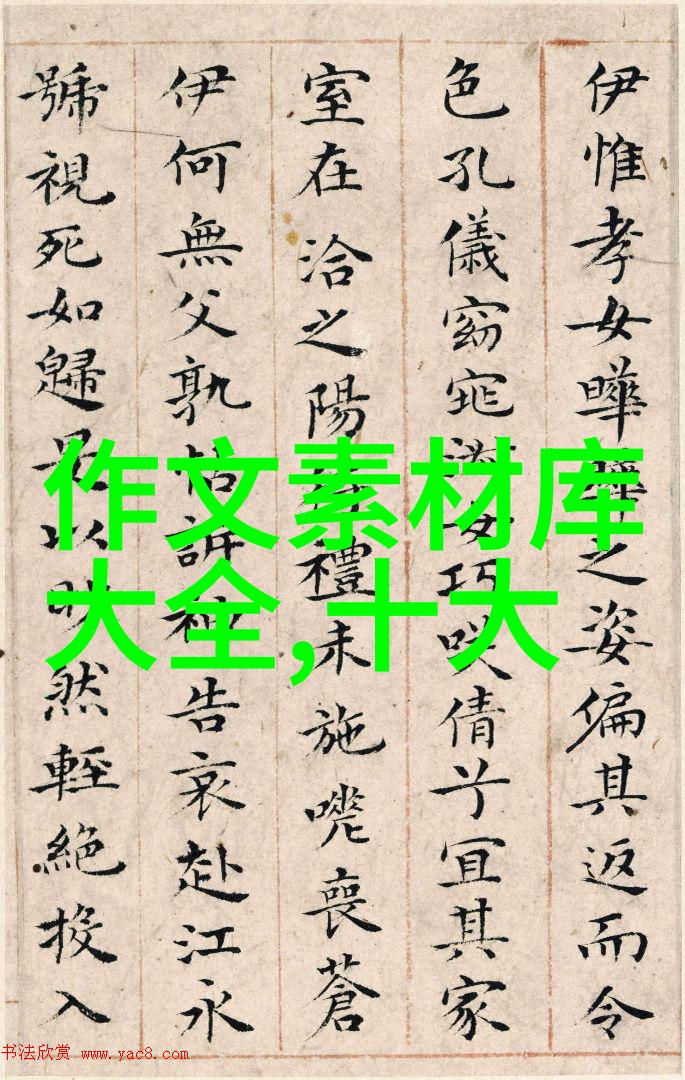 伊惟孝女曄曄之姿偏其返而令
色孔儀窈窕淑女巧咲倩兮宜其家
室在洽之陽待禮未施嗟喪蒼
伊何無父孰怙訴神告哀赴江永
號視死如歸是以眇然輕絕投入
作文素材库
大全,十大
书法欣赏 www.yac8.com